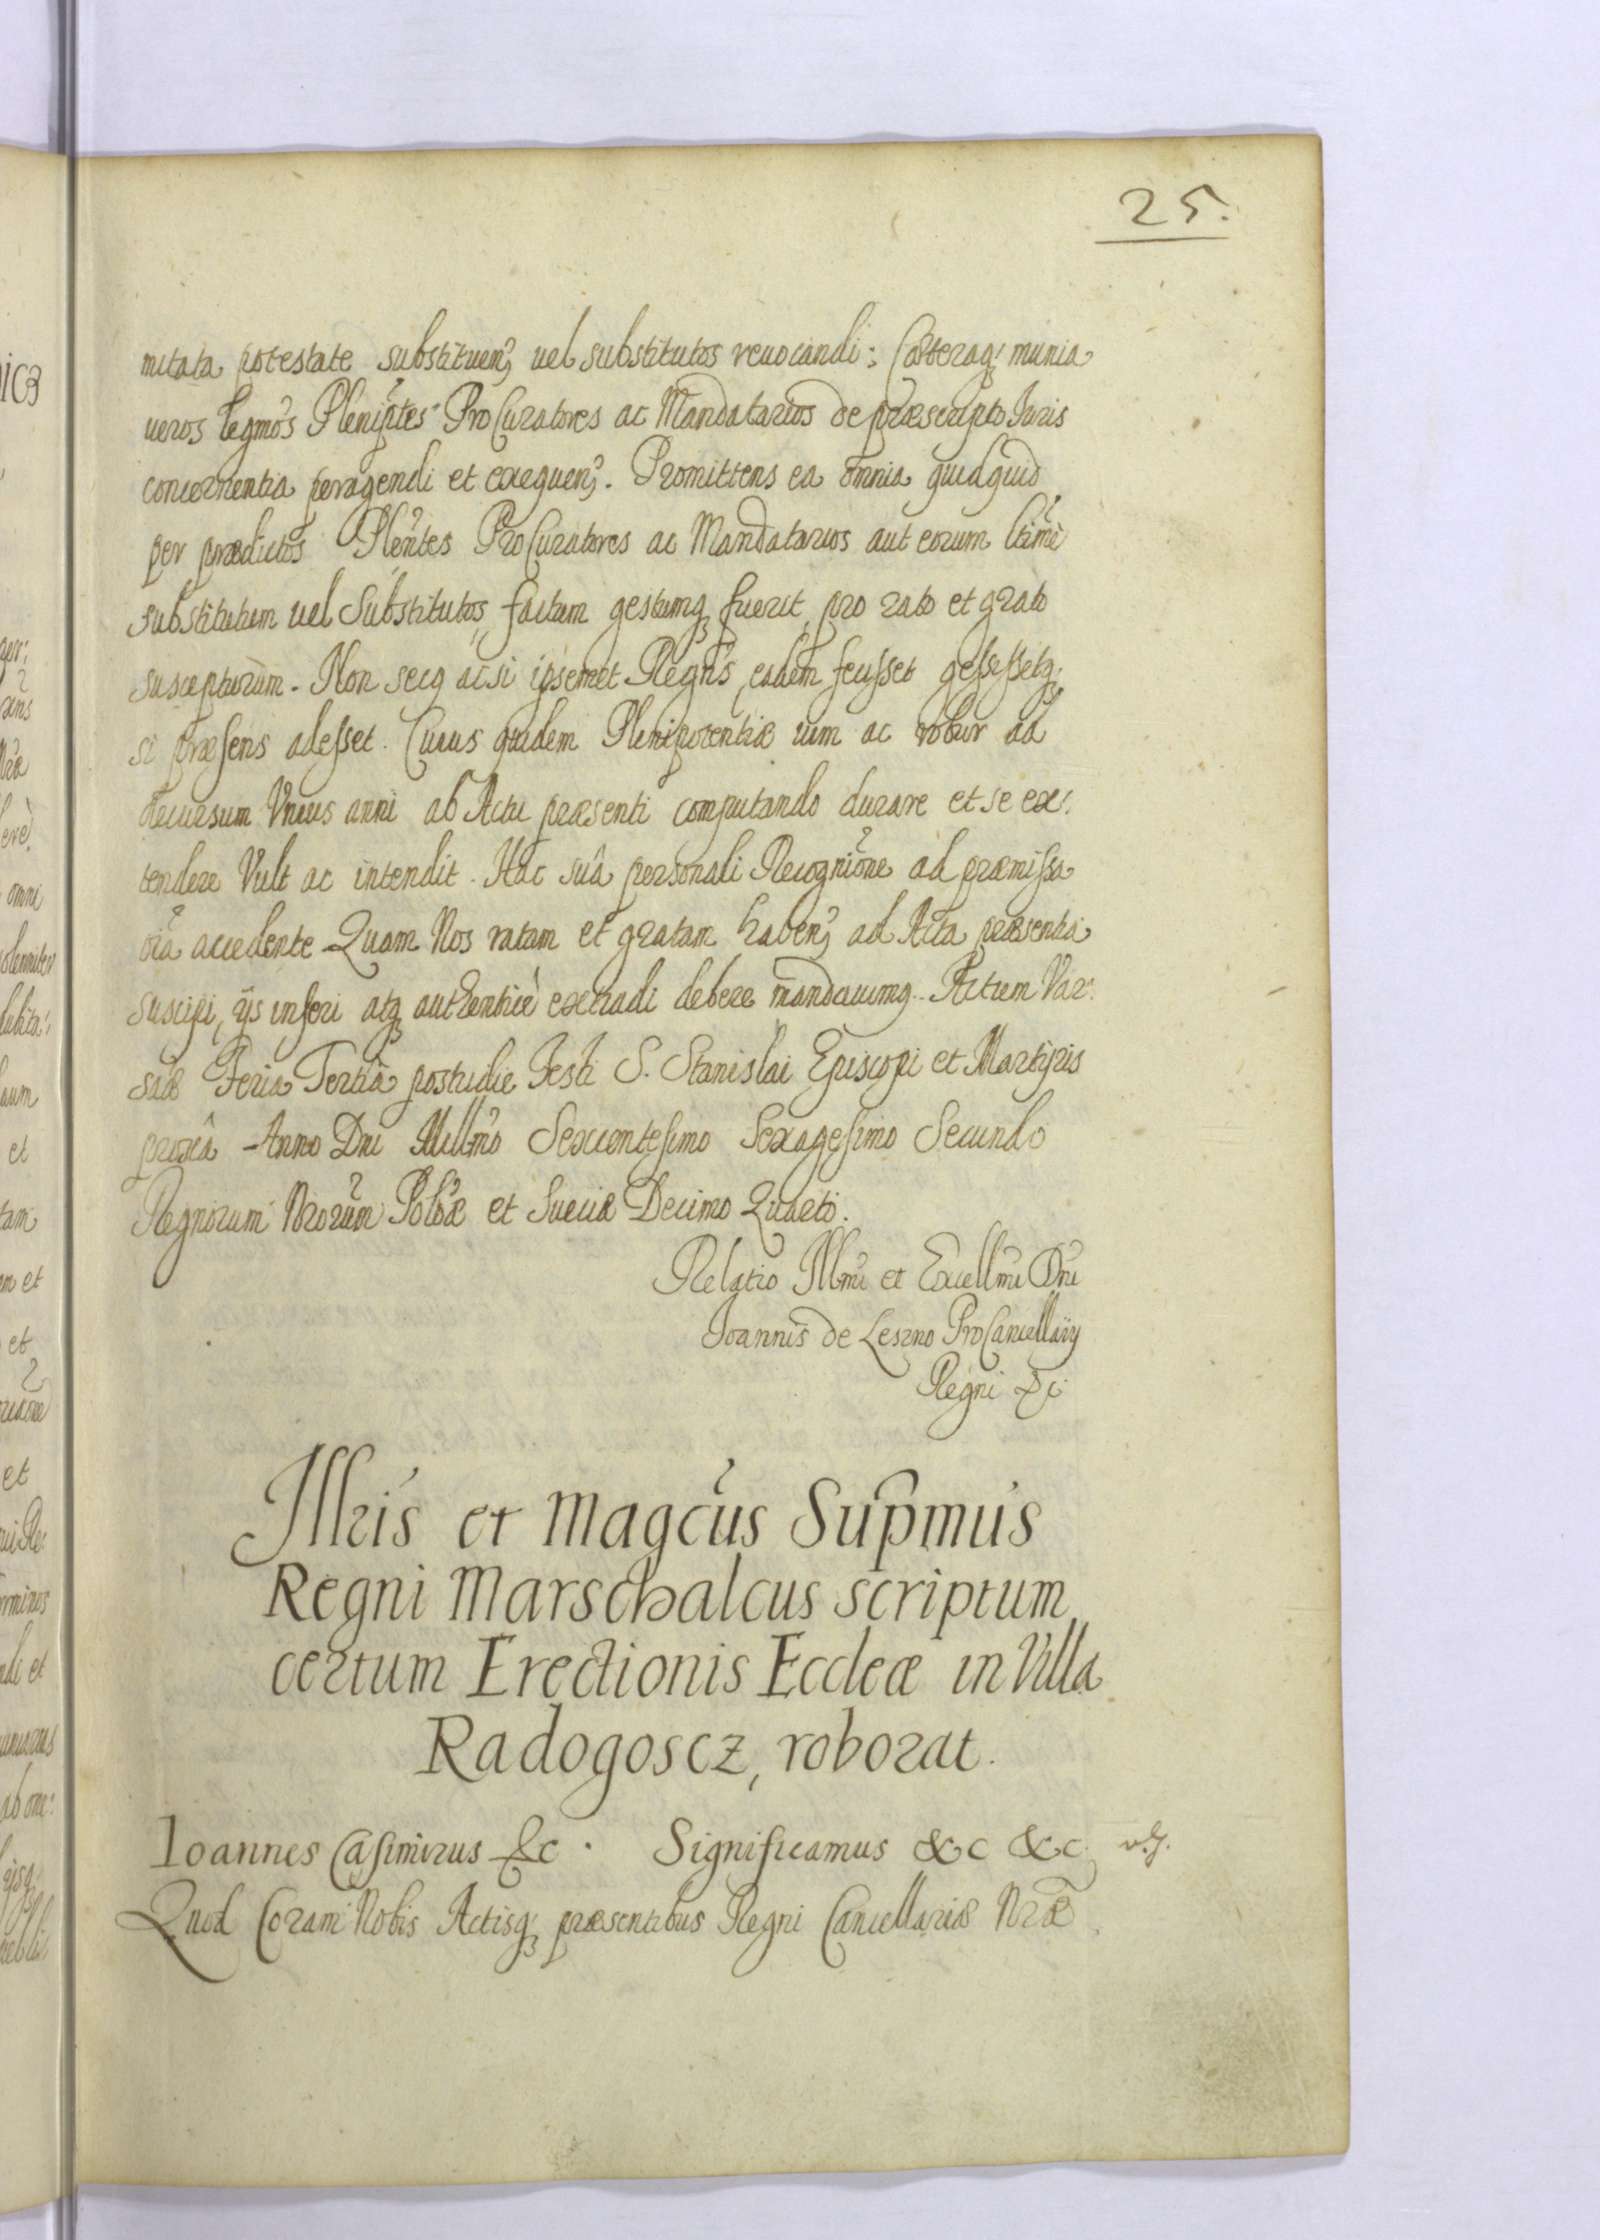 25.
mitata potestate substituen, vel substitutos reuocandi: Cæteraq; munia
ueros legmos Pleniptes ProCuratores ac Mandatarios de præscripto Iuris
concernentia peragendi et exequen. Promittens ea omnia quidquid
per prædictos Plentes ProCuratores ac Mandatarios aut eorum ltime
substitutum uel Substitutos, factum gestumq fuerit, pro rato et grato
suscepturum. Non secq acsi ipsemet Regns, eadem fecisset gessissetq,
si præsens adesset. Cuius quidem Plenipotentiæ uim ac robur ad
decursum Vnius anni ab Actu præsenti computando durare et se ex:
tendere Vult ac intendit. Hac suâ personali Recognione ad præmissa
oia accedente Quam Nos ratam et gratam haben, ad Acta præsentia
suscipi, ijs inseri atq authenticè extradi debere mandauimq. Actum Var:
saæ Feria Tertiâ postridie Festi S. Stanislai Episcopi et Martijris
proxâ Anno Dni Millmo Sexcentesimo Sexagesimo Secundo
Regnorum Nrorum Polæ et Sueciæ Decimo Quarto.
Relatio Illmi et Excellmi Dni
Ioannis de Leszno ProCancellarij
Regni &c
Illris et Magcus Supmus
Regni Marschalcus scriptum
certum Erectionis Eccleæ in Villa
Radogoscz, roborat.
Ioannes Casimirus &c. Significamus &c &c.
Quod Coram Nobis Actisq præsentibus Regni Cancellariæ Nræ